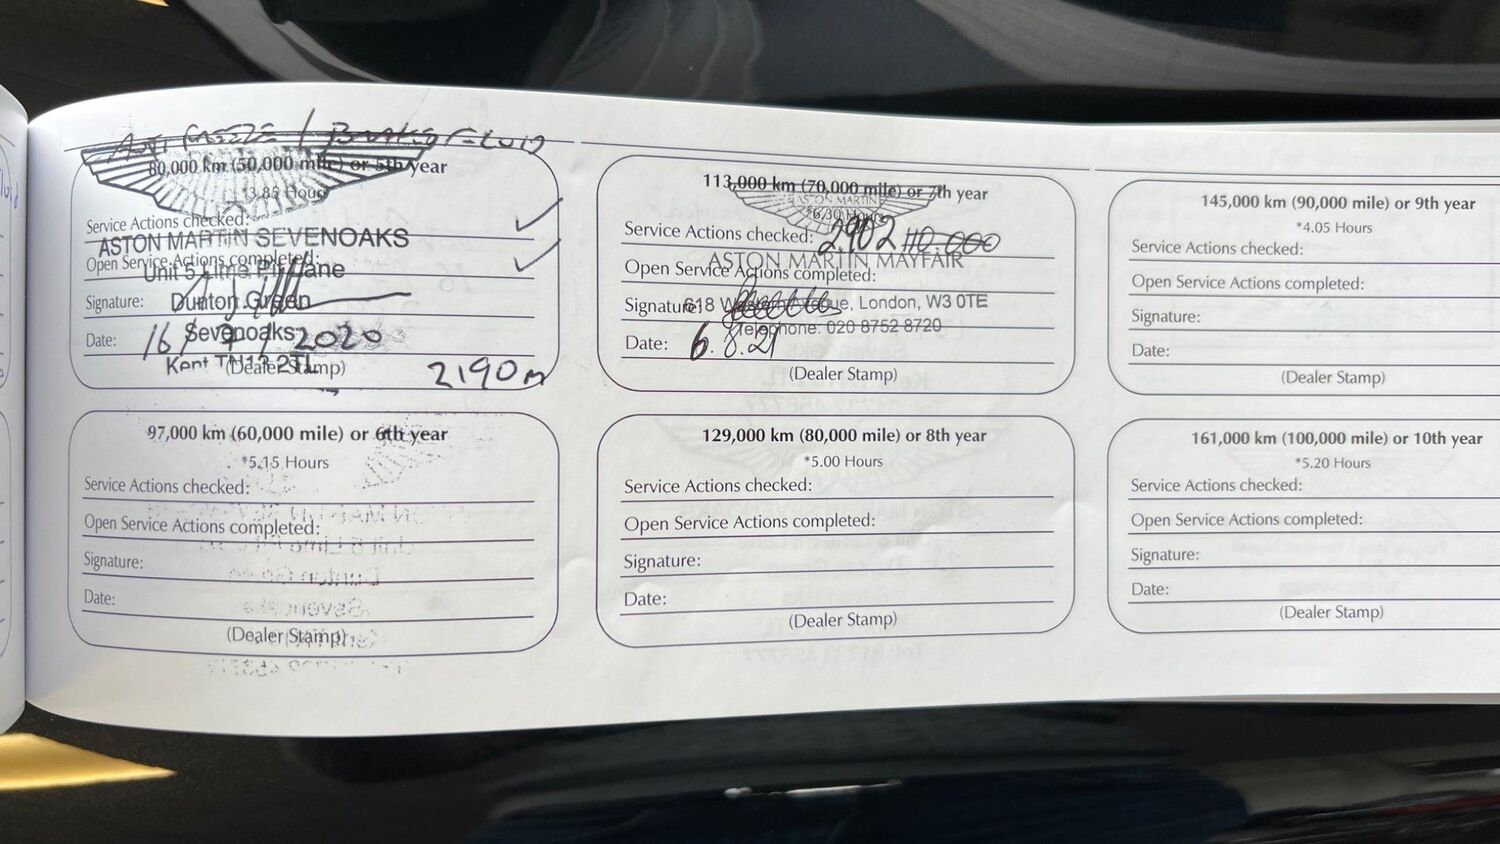 Anti Freeze / Brake Fluid
80,000 km (50,000 mile) or 5th year
*3.85 Hours
Service Actions checked:
ASTON MARTIN SEVENOAKS
Open Service Actions completed:
Unit 5 Lime Pit Lane
Signature:
Dunton Green
Sevenoaks
Date: 16/9/2020
Kent TN13 2TL
(Dealer Stamp)
2190m
97,000 km (60,000 mile) or 6th year
*5.15 Hours
Service Actions checked:
Open Service Actions completed:
Signature:
Date:
(Dealer Stamp)
113,000 km (70,000 mile) or 7th year
ASTON MARTIN
*6.30 Hours
Service Actions checked: 2902
ASTON MARTIN MAYFAIR
Open Service Actions completed:
Signature:
618 Western Avenue, London, W3 0TE
Telephone: 020 8752 8720
Date: 6.8.21
(Dealer Stamp)
129,000 km (80,000 mile) or 8th year
*5.00 Hours
Service Actions checked:
Open Service Actions completed:
Signature:
Date:
(Dealer Stamp)
145,000 km (90,000 mile) or 9th year
*4.05 Hours
Service Actions checked:
Open Service Actions completed:
Signature:
Date:
(Dealer Stamp)
161,000 km (100,000 mile) or 10th year
*5.20 Hours
Service Actions checked:
Open Service Actions completed:
Signature:
Date:
(Dealer Stamp)